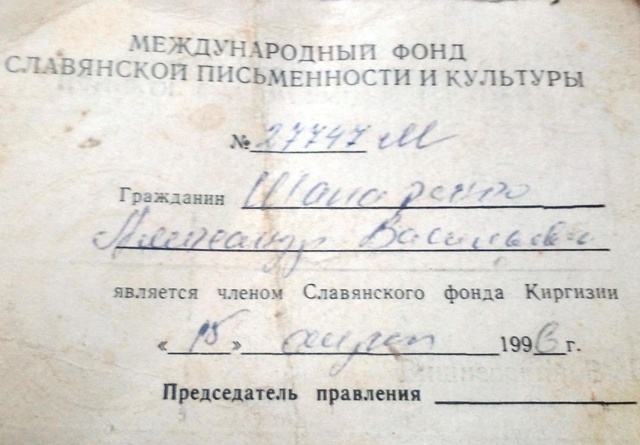 МЕЖДУНАРОДНЫЙ ФОНД
СЛАВЯНСКОЙ ПИСЬМЕННОСТИ И КУЛЬТУРЫ
№ 27747 М
Гражданин
Александр Васильевич
является членом Славянского фонда Киргизии
« 15 » 1996 г.
Председатель правления